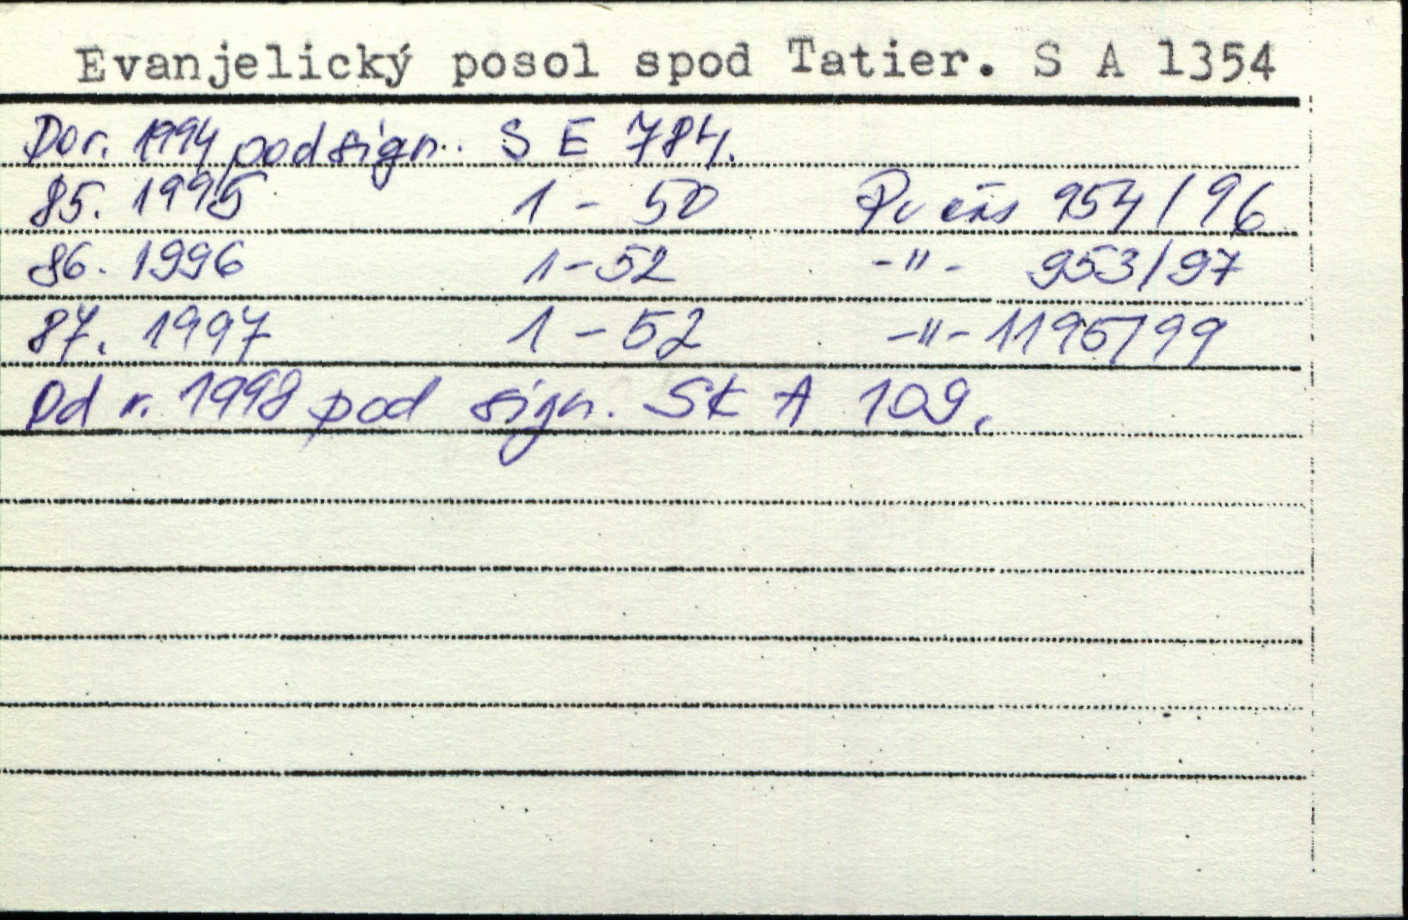 Evanjelický posol spod Tatier. S A 1354
Do r. 1994 pod sign. S E 784.
85. 1995 1 - 50 Pv čas 954/96
86. 1996 1-52 -"- 953/97
87. 1997 1 - 52 -"- 1195/99
Od r. 1998 pod sign. SK A 109.